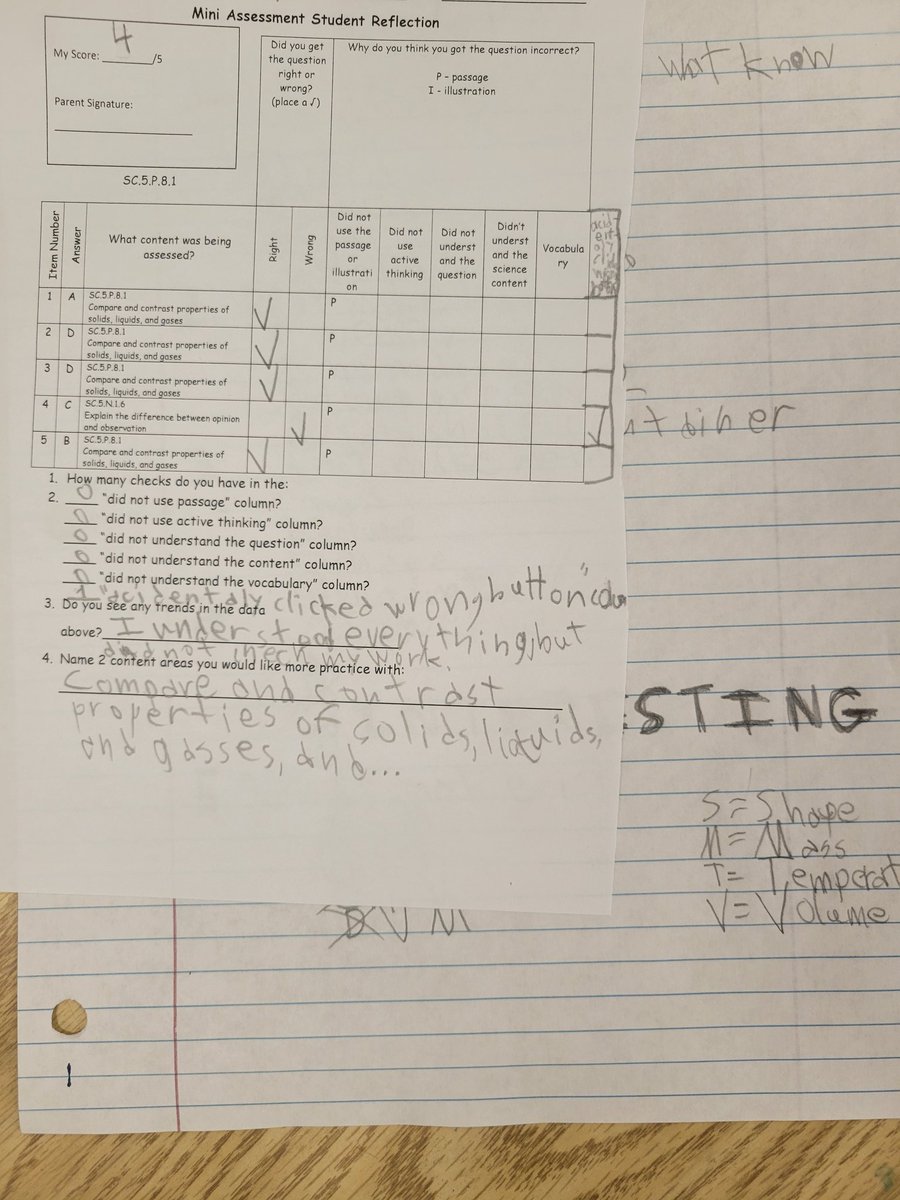 Mini Assessment Student Reflection
My Score: 4 /5
Parent Signature:
SC.5.P.8.1
Did you get
the question
right or
wrong?
(place a √)
Why do you think you got the question incorrect?
P - passage
I - illustration
Item Number
Answer
What content was being
assessed?
Right
Wrong
Did not
use the
passage
or
illustrati
on
Did not
use
active
thinking
Did not
underst
and the
question
Didn't
underst
and the
science
content
Vocabula
ry
1 A SC.5.P.8.1
Compare and contrast properties of
solids, liquids, and gases
√ P
2 D SC.5.P.8.1
Compare and contrast properties of
solids, liquids, and gases
√ P
3 D SC.5.P.8.1
Compare and contrast properties of
solids, liquids, and gases
√ P
4 C SC.5.N.1.6
Explain the difference between opinion
and observation
√ P √
5 B SC.5.P.8.1
Compare and contrast properties of
solids, liquids, and gases
√ P
1. How many checks do you have in the:
2. 0 "did not use passage" column?
0 "did not use active thinking" column?
0 "did not understand the question" column?
0 "did not understand the content" column?
0 "did not understand the vocabulary" column?
1 "acidentaly clicked wrong button"
3. Do you see any trends in the data
above? I understood everything, but
did not check my work.
4. Name 2 content areas you would like more practice with:
Compare and contrast
properties of solids, liquids,
and gasses, and...
what know
STING
S = Shape
M = Mass
T = Temperat
V = Volume